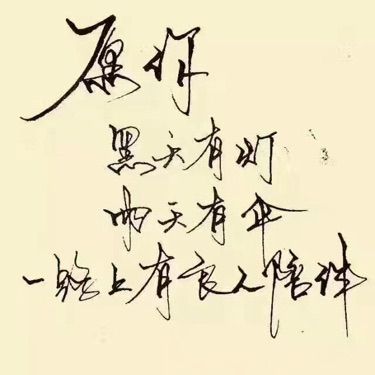 愿你
黑天有灯
雨天有伞
一路上有良人陪伴